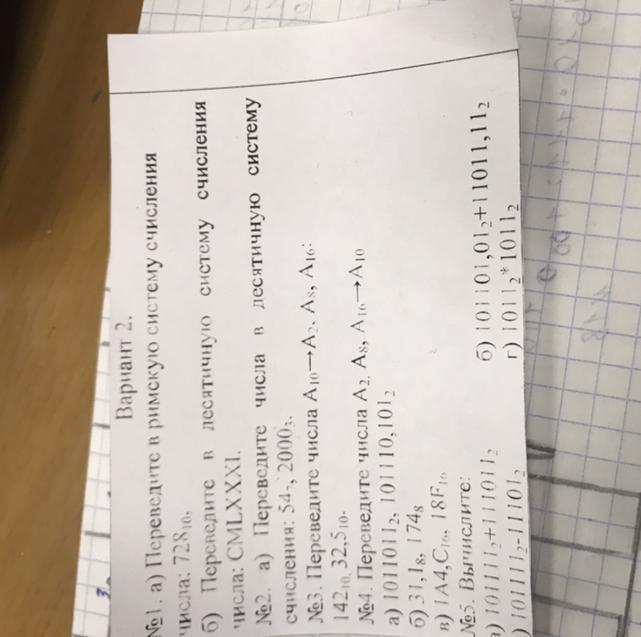 Вариант 2.
№1. а) Переведите в римскую систему счисления
числа: 728₁₀,
б) Переведите в десятичную систему счисления
числа: CMLXXXI.
№2. а) Переведите числа в десятичную систему
счисления: 54₇, 2000₃.
№3. Переведите числа A₁₀→A₂, A₈, A₁₆:
142₁₀, 32,5₁₀.
№4. Переведите числа A₂, A₈, A₁₆→A₁₀
а) 1011011₂, 101110,101₂
б) 31,1₈, 174₈
в) 1A4,C₁₆, 18F₁₆
№5. Вычислите:
а) 101111₂+111011₂ б) 101101,01₂+11011,11₂
) 101111₂-11101₂ г) 1011₂*1011₂